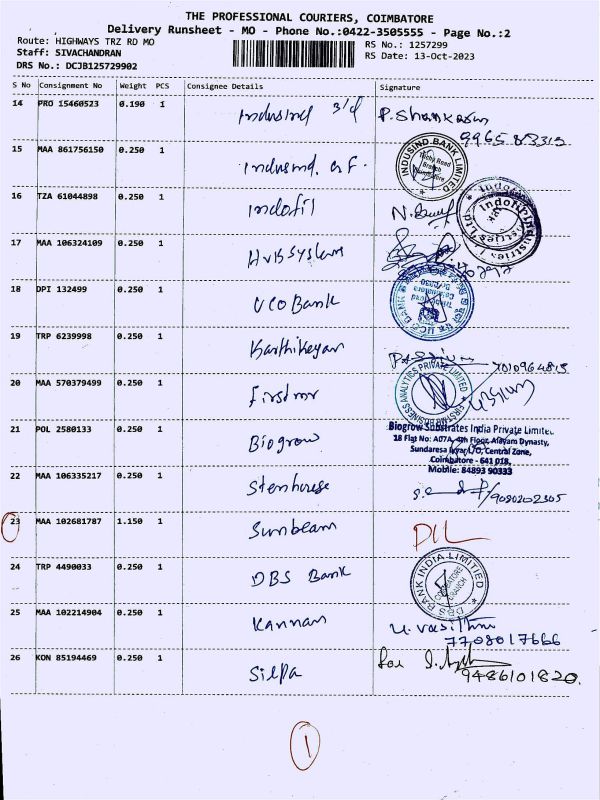 THE PROFESSIONAL COURIERS, COIMBATORE
Delivery Runsheet - MO - Phone No.:0422-3505555 - Page No.:2
Route: HIGHWAYS TRZ RD MO
RS No.: 1257299
Staff: SIVACHANDRAN
RS Date: 13-Oct-2023
DRS No.: DCJB125729902
S No Consignment No Weight PCS Consignee Details Signature
14 PRO 15460523 0.190 1 Indusind P. Shankaran
15 MAA 861756150 0.250 1 Indusind INDUSIND BANK LIMITED
Trichy Road
Branch
Coimbatore
16 TZA 61044898 0.250 1 Indofil
17 MAA 106324109 0.250 1 HVBSsystem
18 DPI 132499 0.250 1 UCO Bank
19 TRP 6239998 0.250 1 Karthikeyan
20 MAA 570379499 0.250 1 Firstmr
21 POL 2580133 0.250 1 Biogrow Biogrow Substrates India Private Limited
18 Flat No: A07A, 4th Floor, Alayam Dynasty,
Sundaresa Iyyar L/O, Central Zone,
Coimbatore - 641 018.
Mobile: 84893 90333
22 MAA 106335217 0.250 1 Stenhouse 9080202305
23 MAA 102681787 1.150 1 Sunbeam D/L
24 TRP 4490033 0.250 1 DBS Bank DBS BANK INDIA LIMITED
COIMBATORE
BRANCH
25 MAA 102214904 0.250 1 Kannan
7708017666
26 KON 85194469 0.250 1 Silpa
9486101820.
1